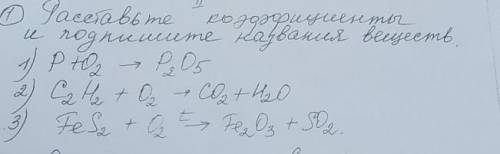 ① Расставьте коэффициенты
и подпишите названия веществ.
1) P+O₂ → P₂O₅
2) C₂H₂ + O₂ → CO₂+H₂O
3) FeS₂ + O₂ t→ Fe₂O₃ + SO₂.